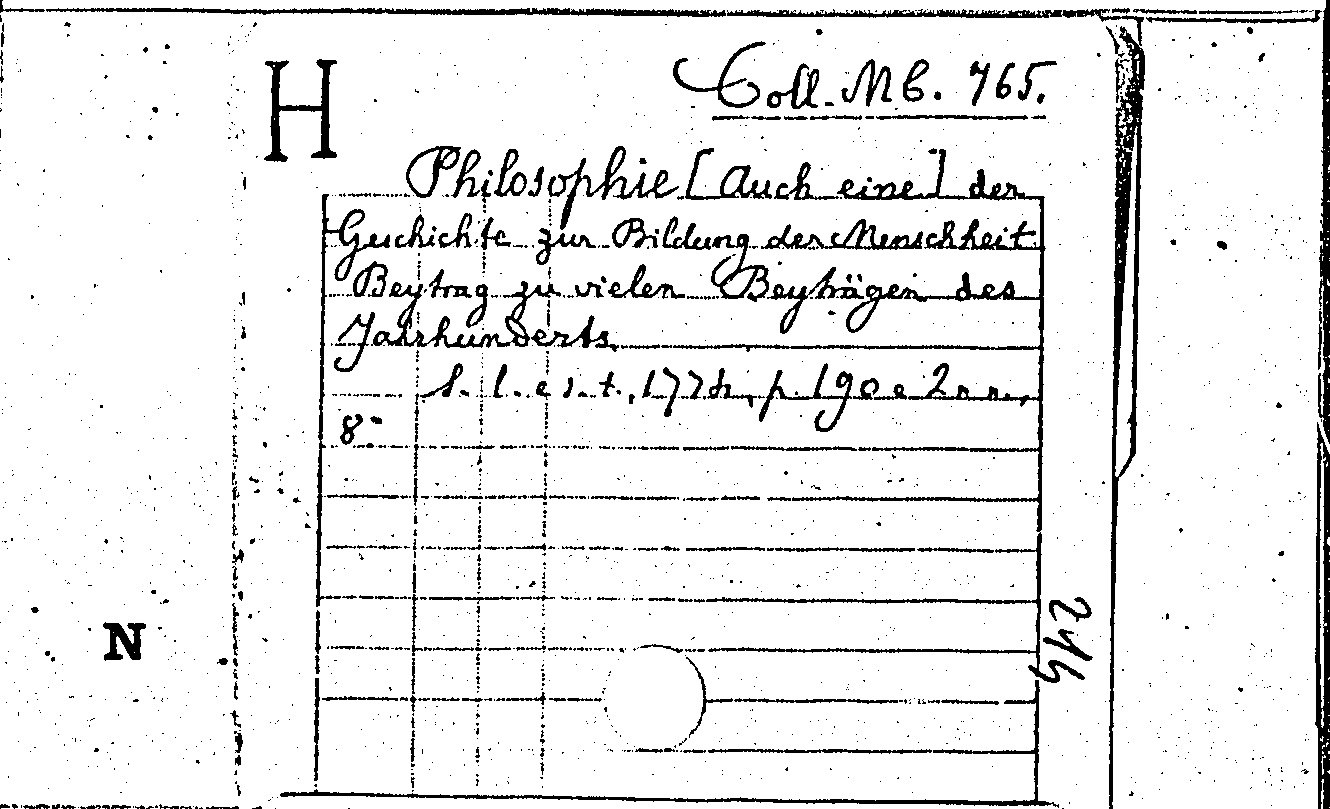 H
Coll. MB. 765.
Philosophie [Auch eine] der
Geschichte zur Bildung der Menschheit
Beytrag zu vielen Beyträgen des
Jahrhunderts.
S. l. e s. t., 1774, p. 190 e 2 n n.,
8.-
N